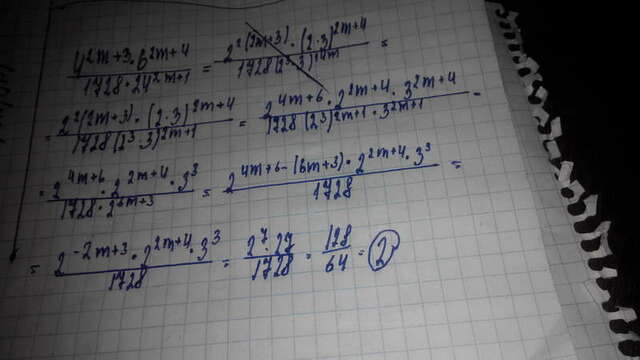 4^{2m+3}·6^{2m+4} / 1728·24^{2m+1} = 2^{2(2m+3)}·(2·3)^{2m+4} / 1728(2^3·3)^{14m} =
= 2^{2(2m+3)}·(2·3)^{2m+4} / 1728(2^3·3)^{2m+1} = 2^{4m+6}·2^{2m+4}·3^{2m+4} / 1728(2^3)^{2m+1}·3^{2m+1} =
= 2^{4m+6}·2^{2m+4}·3^3 / 1728·2^{6m+3} = 2^{4m+6-(6m+3)}·2^{2m+4}·3^3 / 1728 =
= 2^{-2m+3}·2^{2m+4}·3^3 / 1728 = 2^7·27 / 1728 = 128 / 64 = 2